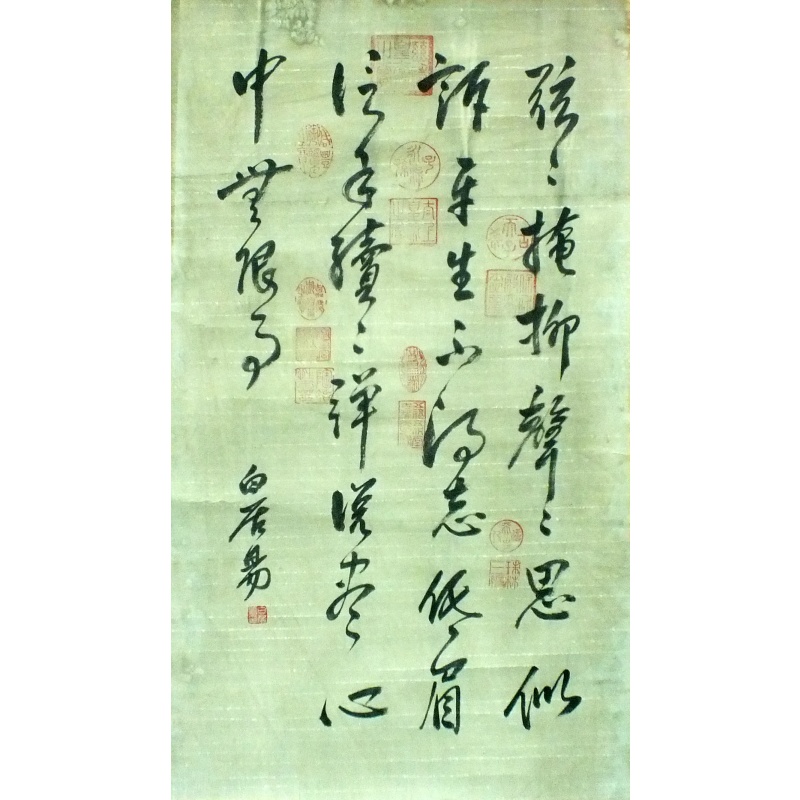 弦〻掩抑聲〻思似
訴平生不得志低眉
信手續〻彈說盡心
中無限事
白居易